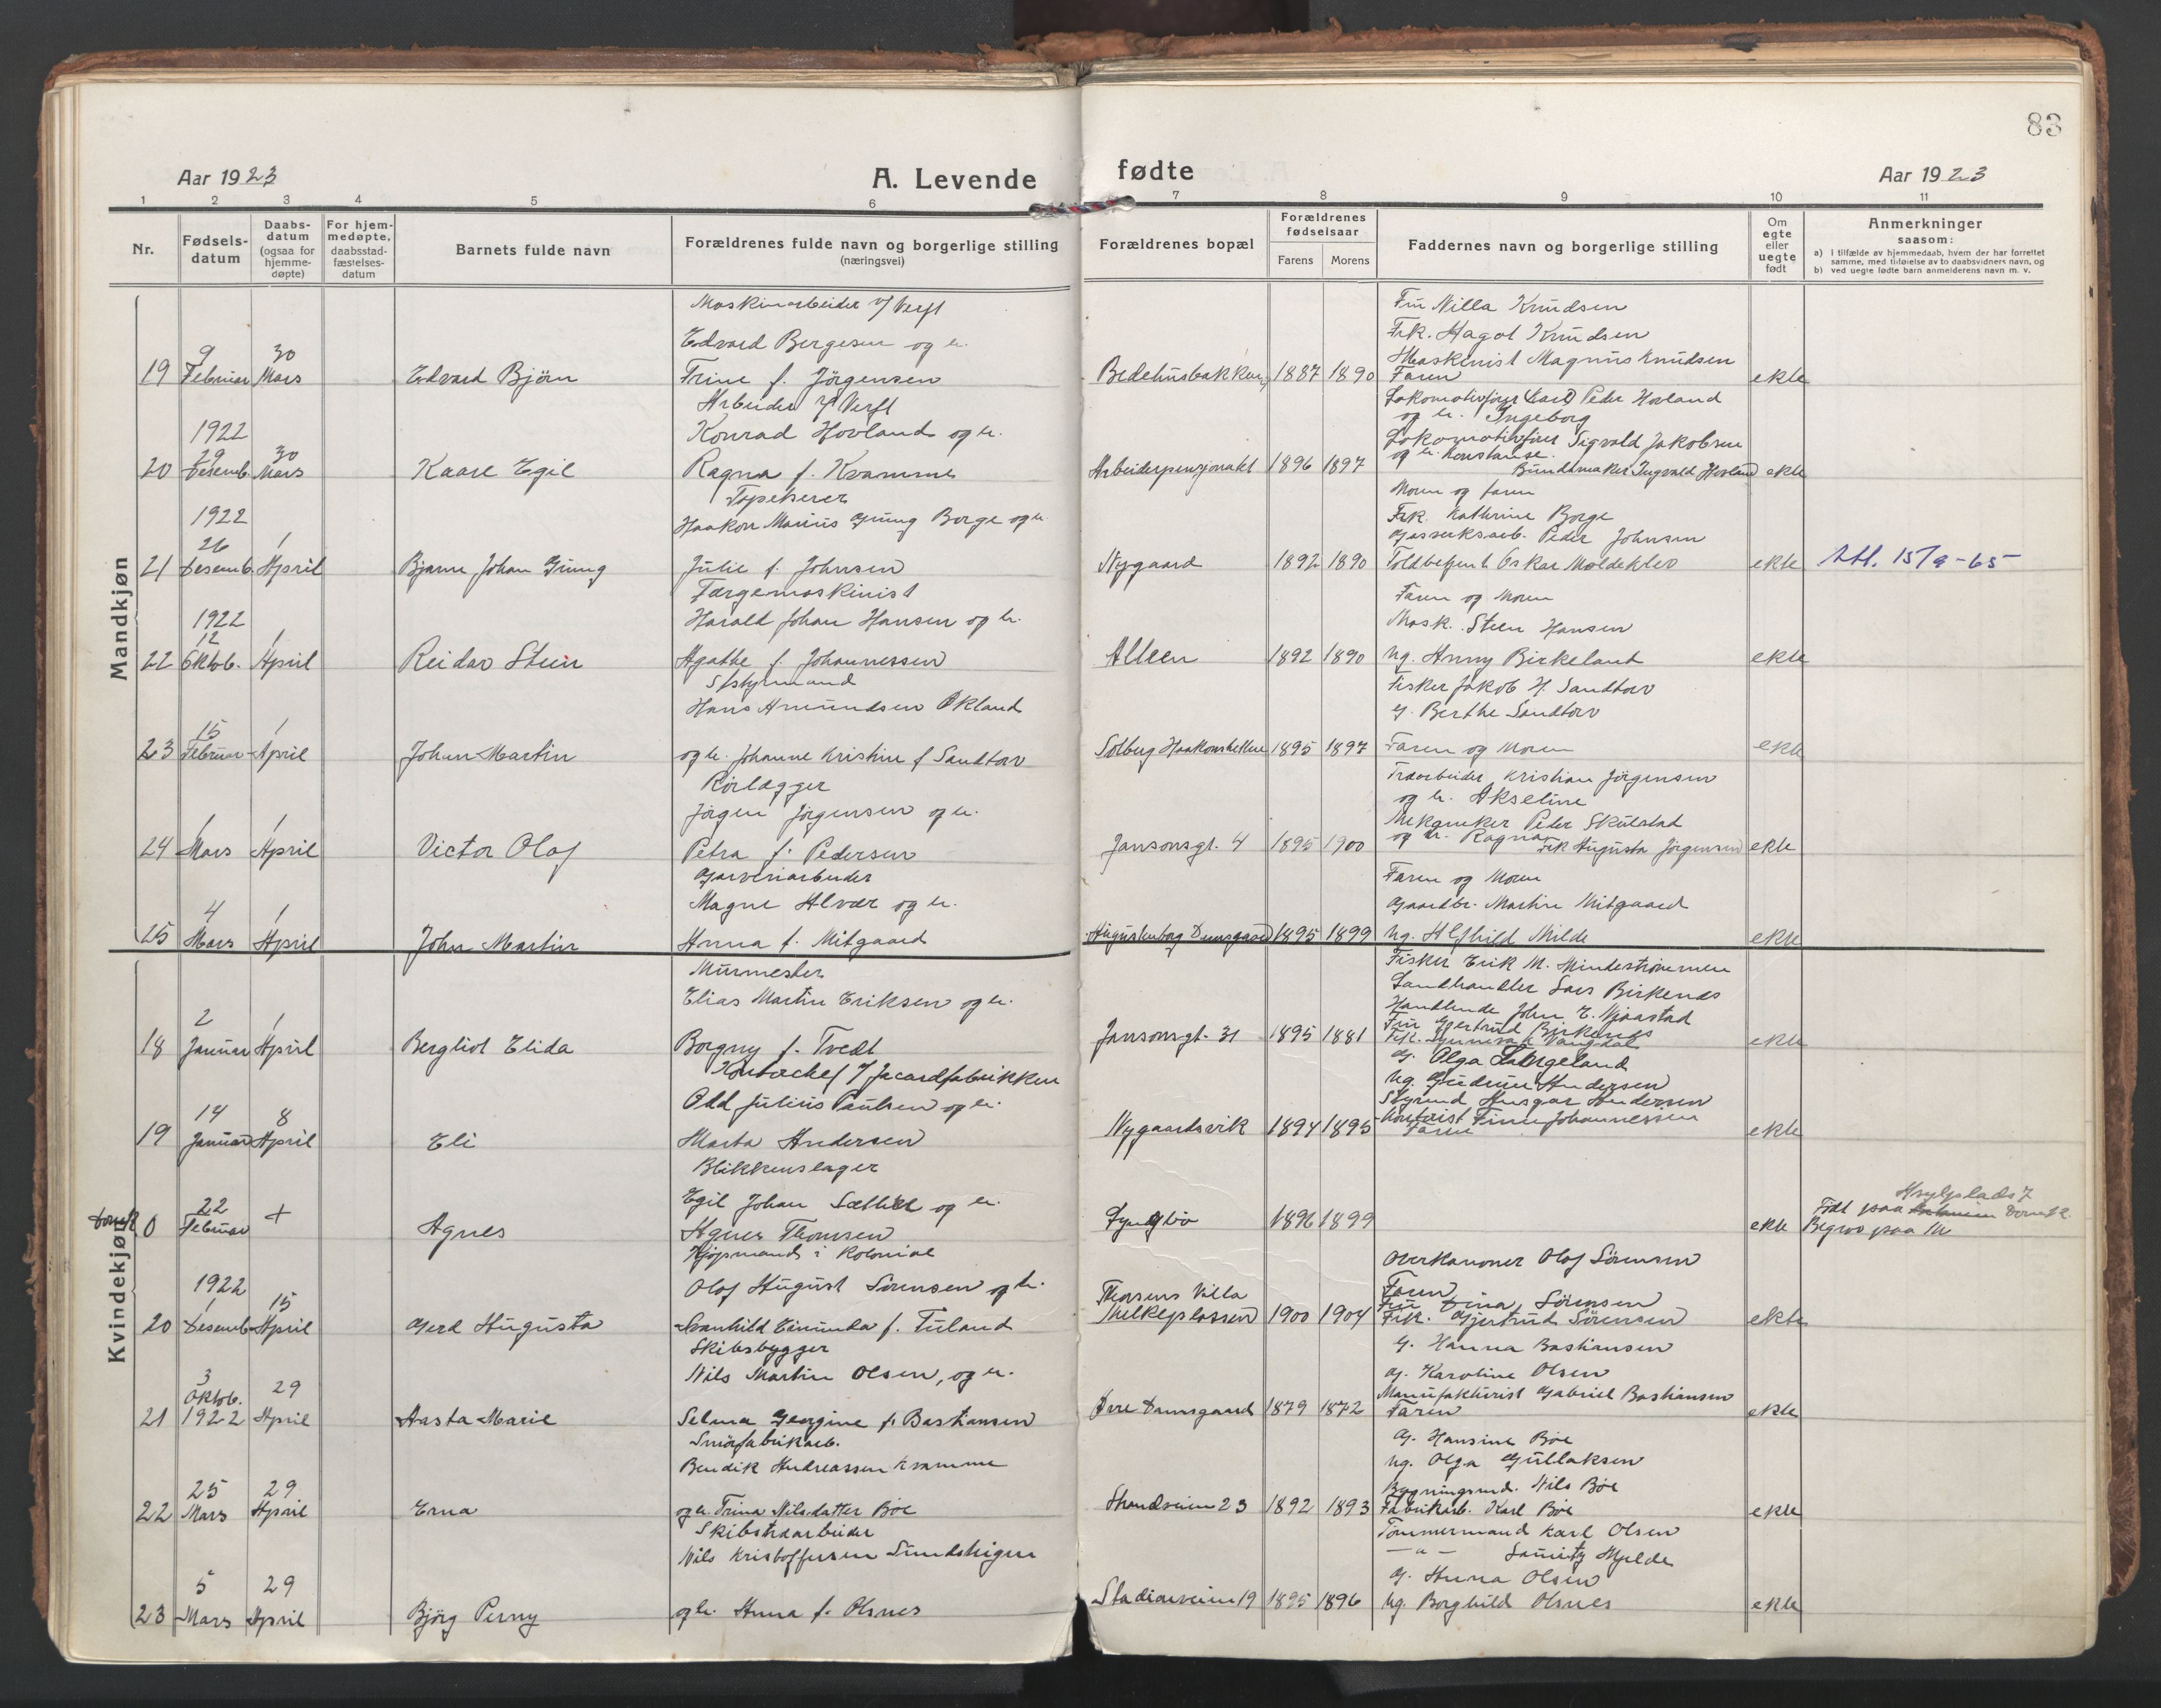 83
Aar 1923
A. Levende fødte
Aar 1923
1 2 3 4 5 6 7 8 9 10 11
Nr.
Fødsels-
datum
Daabs-
datum
(ogsaa for
hjemme-
døpte)
For hjem-
medøpte,
daabsstad-
fæstelses-
datum
Barnets fulde navn
Forældrenes fulde navn og borgerlige stilling
(næringsvei)
Forældrenes bopæl
Forældrenes
fødselsaar
Farens
Morens
Faddernes navn og borgerlige stilling
Om
egte
eller
uegte
født
Anmerkninger
saasom:
a) i tilfælde av hjemmedaab, hvem der har forrettet
samme, med tilføielse av to daabsvidners navn, og
b) ved uegte fødte barn anmelderens navn m. v.
Mandkjøn
Maskinarbeider v/ Verft
Edvard Bergesen og h.
19 9 Februar 30 Mars Edvard Bjørn Trine f. Jörgensen
Bedehusbakken 1887 1890
Fru Nilla Knudsen
Frk. Hagot Knudsen
Maskinist Magnus Knudsen
Faren
ekte
Arbeider v/ Verft
Konrad Hovland og h.
20 1922 29 Desemb. 30 Mars Kaare Egil Ragna f. Kvamme
Arbeiderpensjonatet 1896 1897
Lokomotivfyr Carl Peder Hovland
og h. Ingeborg
Lokomotivfører Sigvald Jakobsen
og h. Konstanse.
Bundtmaker Ingvald Hovland
ekte
Tapetserer
Haakon Marius Gjung Borge og h.
21 1922 26 Desemb. 1 April Bjarne Johan Gjung Julie f. Johnsen
Nygaard 1892 1890
Moren og faren
Frk. Kathrine Borge
Gassverksarb. Peder Johnsen
Toldbetjent Oskar Moldeklev
ekte
Att. 15/9-65
Færgemaskinist
Harald Johan Hansen og h.
22 1922 12 Oktob. 1 April Reidar Stein Agathe f. Johannessen
Alleen 1892 1890
Faren og Moren
Mask. Steen Hansen
Ug. Anny Birkeland
ekte
Styrmand
Hans Amundsen Økland
23 15 Februar 1 April Johan Martin og h. Johanne Kristine f Sandtorv
Solberg Haakonshellen 1895 1897
Fisker Jakob H. Sandtorv
G. Berthe Sandtorv
Faren og Moren
ekte
Rörlægger
Jörgen Jörgensen og h.
24 1 Mars 1 April Victor Olaf Petra f. Pedersen
Jansonsgt. 4 1895 1900
Træarbeider Kristian Jörgensen
og h. Akseline
Mekaniker Peder Skulstad
og h. Ragna
Frk Augusta Jörgensen
ekte
Garveriarbeider
Magne Alvær og h.
25 4 Mars 1 April John Martin Anna f. Mitgaard
Augustenborg Damsgaard 1895 1899
Faren og Moren
Gaardbr. Martin Mitgaard
Ug. Alfhild Milde
ekte
Kvindekjøn
Murmester
Elias Martin Eriksen og h.
18 2 Januar 1 April Bergliot Elida Borgny f. Tvedt
Jansonsgt. 31 1895 1881
Fisker Erik M.
Landhandler Lars Birkenes
Handlende John E. Njaastad
Fru Gjertrud Birkenes
Frk.
ekte
Kontorchef v/ Jacardfabrikken
Odd Julius Paulsen og h.
19 14 Januar 8 April Eli Marta Andersen
Nygaardsvik 1894 1895
G. Olga Labergeland
Ug. Gudrun Andersen
Styrmd Ansgar Andersen
Kontorist Finn Johannessen
Faren
ekte
Blikkenslager
Egil Johan Sæther og h.
Domk 0 22 Februar + Agnes Agnes Thomsen
Lyngbö 1896 1899
ekte
Asylplads 7
Født paa Domk.
Begrav paa M
Kjøpmand i Kolonial
Olaf August Sörensen og h.
20 1922 1 Desemb. 15 April Gerd Augusta Svanhild Edmunda f. Tuland
Thorsens Villa
Melkeplassen 1900 1904
Overkanoner Olaf Sörensen
Faren
Fru Dina Sörensen
Frk. Gjertrud Sörensen
ekte
Skibsbygger
Nils Martin Olsen, og h.
21 3 Oktob. 1922 29 April Aasta Marie Selma Georgine f. Bastiansen
Øvre Damsgaard 1879 1872
G. Hanna Bastiansen
G. Karoline Olsen
Manufakturist Gabriel Bastiansen
Faren
ekte
Smörfabrikarb.
Bendik Andreassen Kvamme
22 25 Mars 29 April Erna og h. Trina Nilsdatter Böe
Strandveien 23 1892 1893
G. Hansine Böe
Ug. Olga Gullaksen
Bygningsmd. Nils Böe
Fabrikarb. Karl Böe
ekte
Skibstræarbeider
Nils Kristoffersen Sundstrigen
23 5 Mars 29 April Björg Perny og h. Anna f. Olsnes
Stadionveien 19 1895 1896
Tömmermand Karl Olsen
— " — Hjelde
G. Anna Olsen
Ug. Borghild Olsnes
ekte